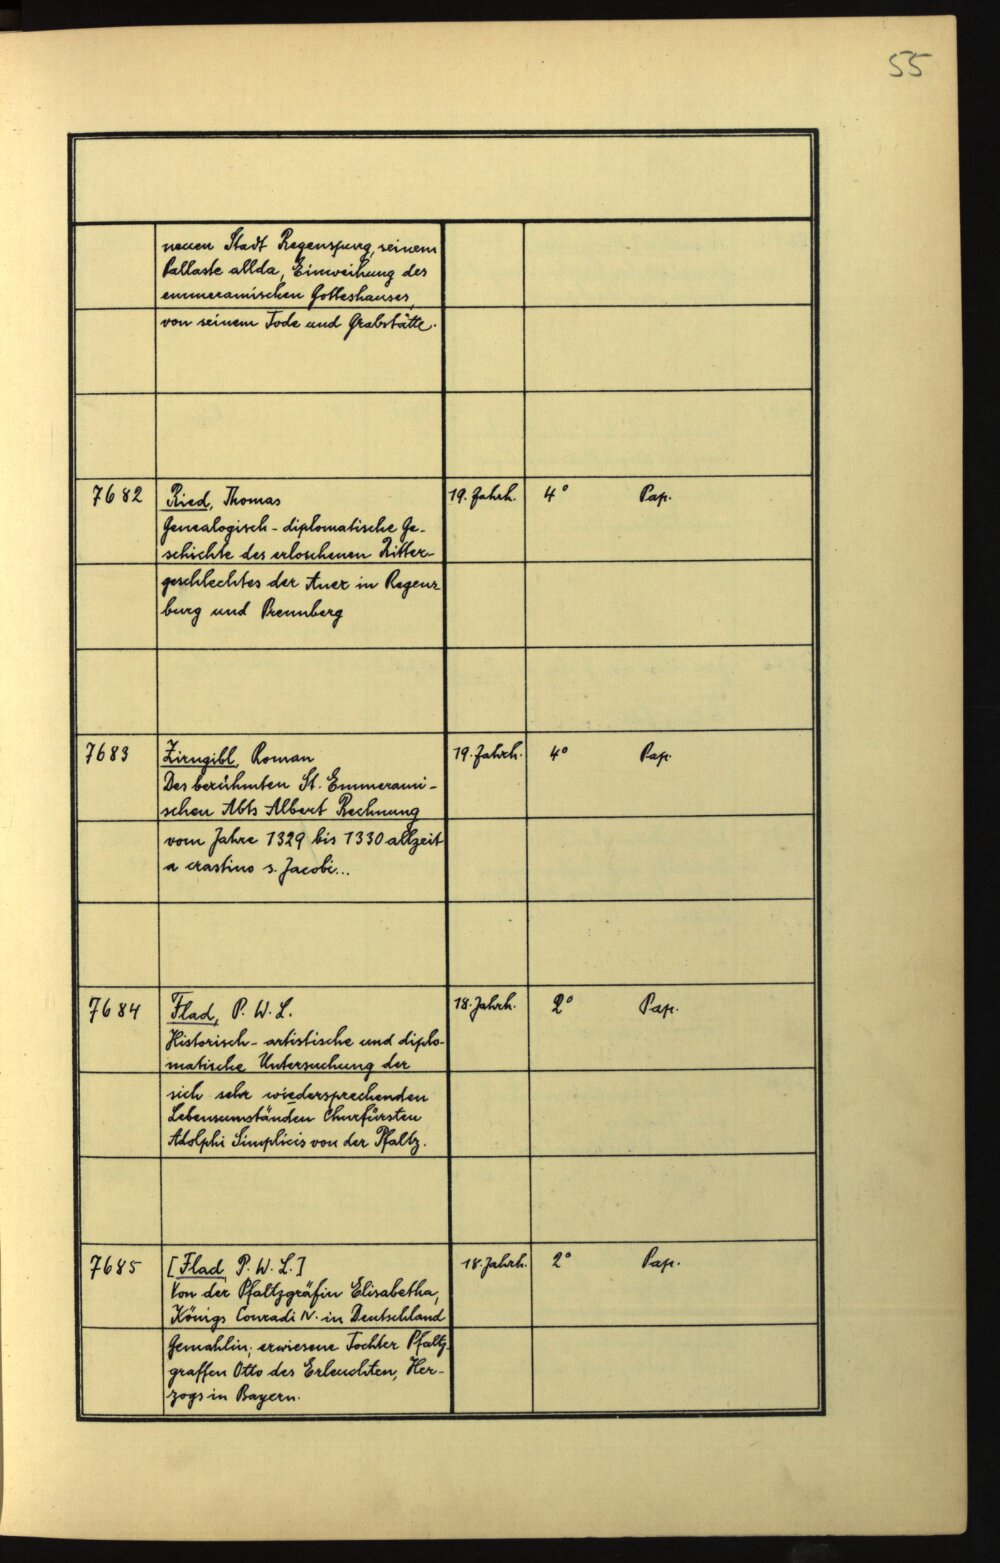 55
neuen Stadt Regenspurg, seinem
Pallaste allda, Einweihung des
emmeramischen Gotteshauses,
von seinem Tode und Grabstätte.
7682 Ried, Thomas 19. Jahrh. 4° Pap.
Genealogisch-diplomatische Ge-
schichte des erloschenen Ritter-
geschlechtes der Auer in Regens-
burg und Prennberg
7683 Zirngibl, Roman 19. Jahrh. 4° Pap.
Des berühmten St. Emmerami-
schen Abts Albert Rechnung
vom Jahre 1329 bis 1330 allzeit
a crastino s. Jacobi...
7684 Flad, P. W. L. 18. Jahrh. 2° Pap.
Historisch-artistische und diplo-
matische Untersuchung der
sich sehr wiedersprechenden
Lebensumständen Churfürsten
Adolphi Simplicis von der Pfaltz.
7685 [Flad P. W. L.] 18. Jahrh. 2° Pap.
Von der Pfaltzgräfin Elisabetha,
Königs Conradi IV. in Deutschland
Gemahlin; erwiesene Tochter Pfaltz-
graffen Otto des Erleuchten, Her-
zogs in Bayern.